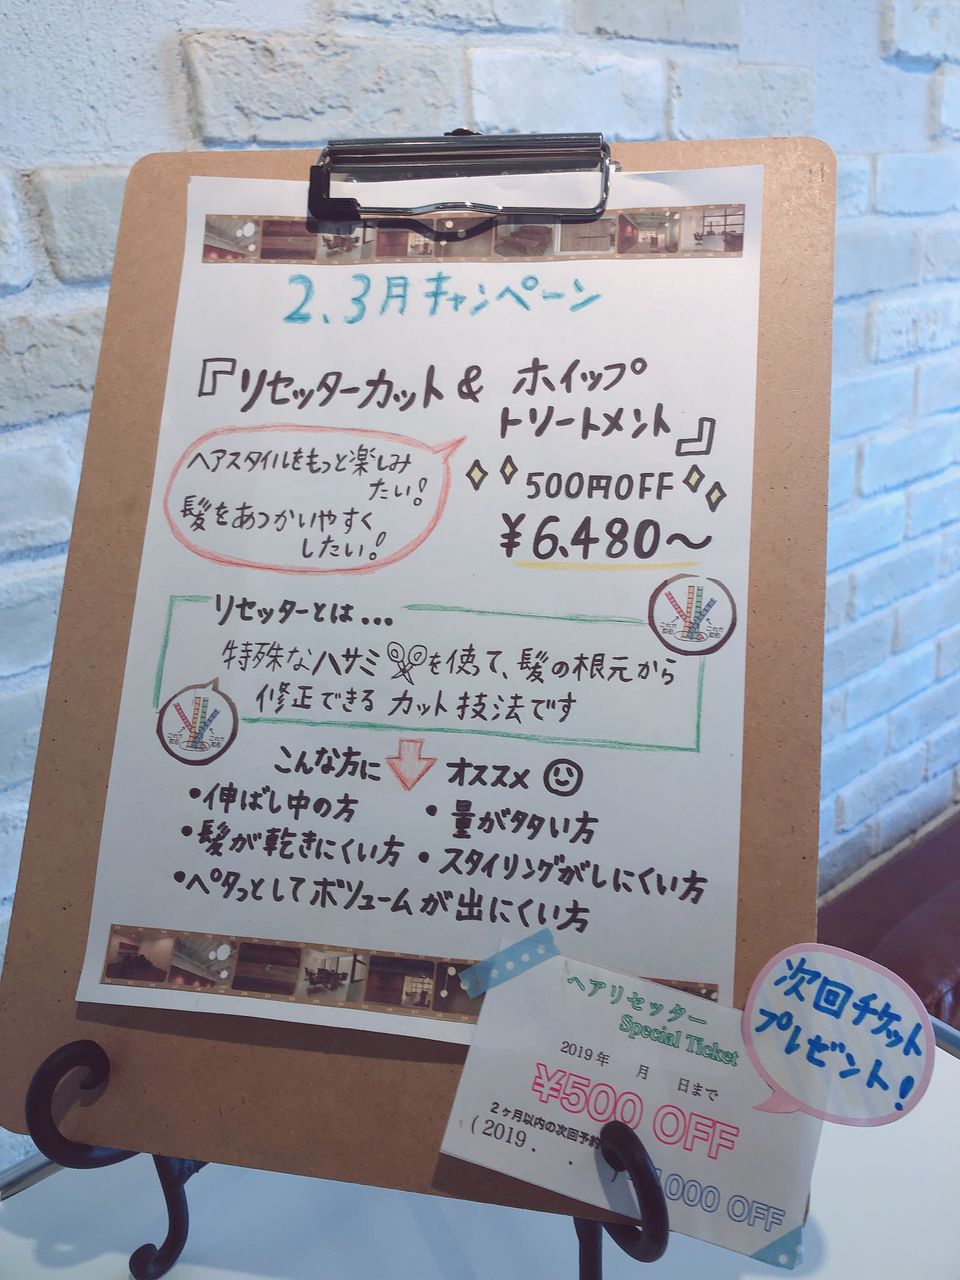 2、3月キャンペーン
『リセッターカット & ホイップ
トリートメント』
ヘアスタイルをもっと楽しみ
たい!
髪をあつかいやすく
したい!
500円OFF
¥6.480〜
リセッターとは...
特殊なハサミを使って、髪の根元から
修正できるカット技法です
こんな方に オススメ
・伸ばし中の方
・量が多い方
・髪が乾きにくい方
・スタイリングがしにくい方
・ペタっとしてボリュームが出にくい方
ヘアリセッター
Special Ticket
2019年 月 日まで
¥500 OFF
2ヶ月以内の次回予約
(2019. . )
000 OFF
次回チケット
プレゼント!